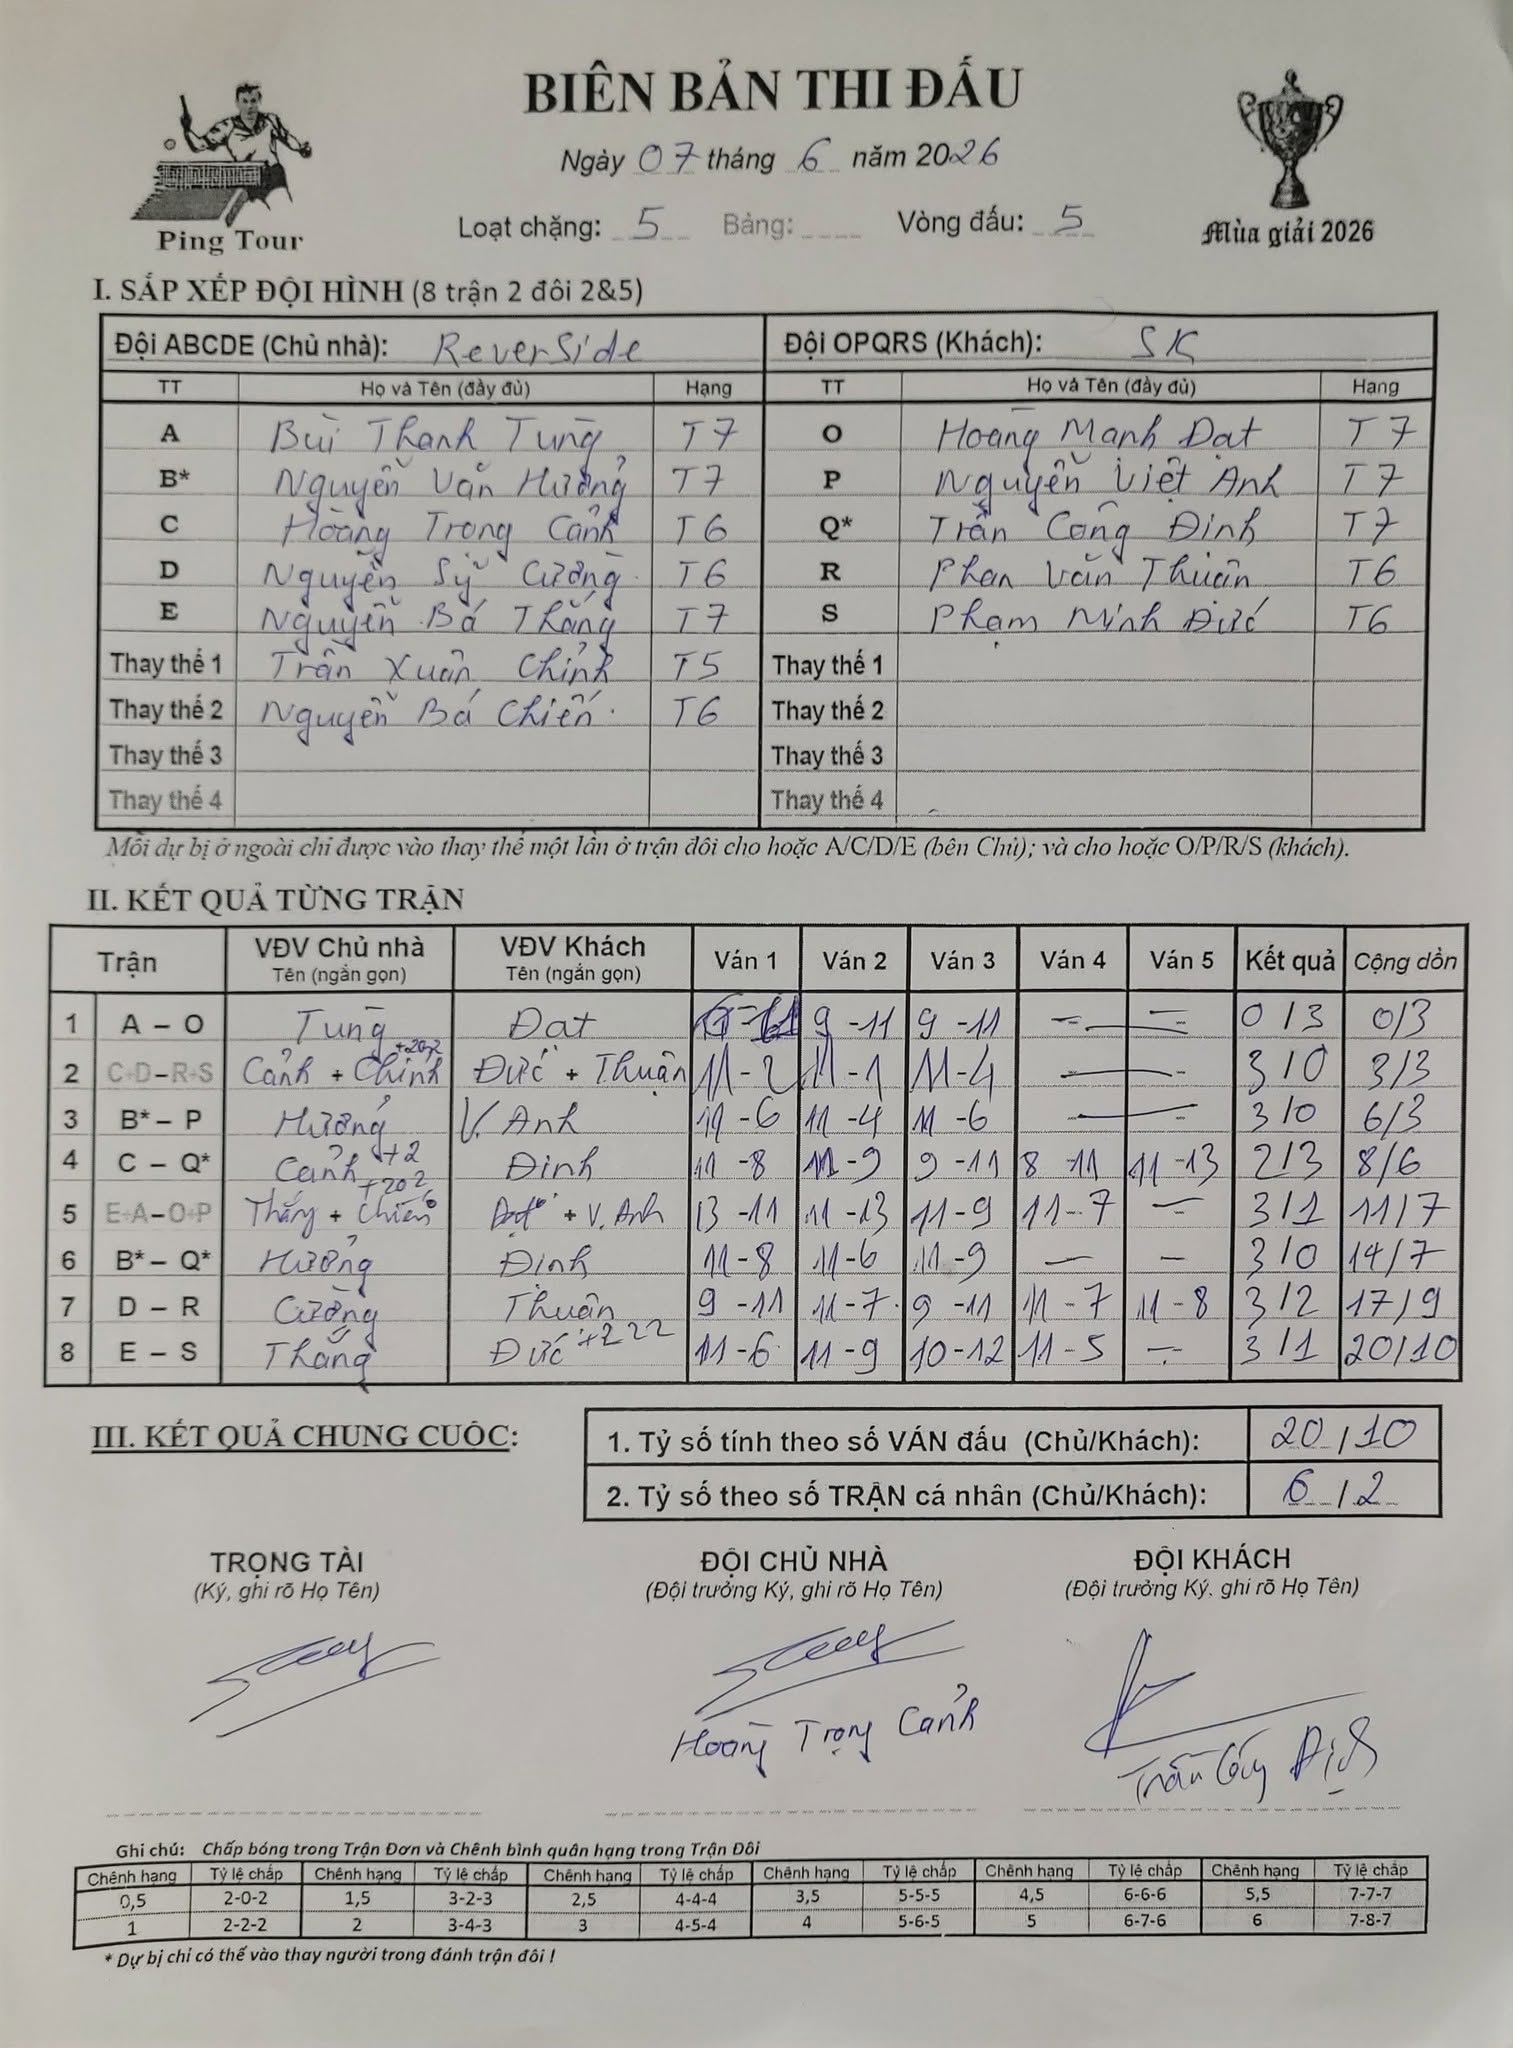 BIÊN BẢN THI ĐẤU
Ngày 07 tháng 6 năm 2026
Ping Tour
Loạt chặng: 5 Bảng: Vòng đấu: 5
Mùa giải 2026
I. SẮP XẾP ĐỘI HÌNH (8 trận 2 đôi 2&5)
Đội ABCDE (Chủ nhà): ReverSide Đội OPQRS (Khách): SK
TT Họ và Tên (đầy đủ) Hạng TT Họ và Tên (đầy đủ) Hạng
A Bùi Thanh Tùng T7 O Hoàng Mạnh Đạt T7
B* Nguyễn Văn Hưởng T7 P Nguyễn Việt Anh T7
C Hoàng Trọng Cảnh T6 Q* Trần Công Định T7
D Nguyễn Sỹ Cường T6 R Phan Văn Thuân T6
E Nguyễn Bá Thắng T7 S Phạm Minh Đức T6
Thay thế 1 Trần Xuân Chỉnh T5 Thay thế 1
Thay thế 2 Nguyễn Bá Chiến. T6 Thay thế 2
Thay thế 3 Thay thế 3
Thay thế 4 Thay thế 4
Mỗi dự bị ở ngoài chỉ được vào thay thế một lần ở trận đôi cho hoặc A/C/D/E (bên Chủ); và cho hoặc O/P/R/S (khách).
II. KẾT QUẢ TỪNG TRẬN
Trận VĐV Chủ nhà Tên (ngắn gọn) VĐV Khách Tên (ngắn gọn) Ván 1 Ván 2 Ván 3 Ván 4 Ván 5 Kết quả Cộng dồn
1 A – O Tùng Đạt 9 - 11 9 - 11 — — 0/3 0/3
2 C+D–R+S Cảnh + Chỉnh +202 Đức + Thuận 11 - 2 11 - 1 11 - 4 — — 3/0 3/3
3 B* – P Hưởng V. Anh 11 - 6 11 - 4 11 - 6 — — 3/0 6/3
4 C – Q* Cảnh +2 Đinh 11 - 8 11 - 9 9 - 11 8 - 11 11 - 13 2/3 8/6
5 E+A–O+P Thắng + Chiến +202 Đạt + V. Anh 13 - 11 11 - 13 11 - 9 11 - 7 — 3/1 11/7
6 B* – Q* Hưởng Đinh 11 - 8 11 - 6 11 - 9 — — 3/0 14/7
7 D – R Cường Thuân 9 - 11 11 - 7 9 - 11 11 - 7 11 - 8 3/2 17/9
8 E – S Thắng Đức +222 11 - 6 11 - 9 10 - 12 11 - 5 — 3/1 20/10
III. KẾT QUẢ CHUNG CUỘC:
1. Tỷ số tính theo số VÁN đấu (Chủ/Khách): 20/10
2. Tỷ số theo số TRẬN cá nhân (Chủ/Khách): 6/2
TRỌNG TÀI ĐỘI CHỦ NHÀ ĐỘI KHÁCH
(Ký, ghi rõ Họ Tên) (Đội trưởng Ký, ghi rõ Họ Tên) (Đội trưởng Ký, ghi rõ Họ Tên)
Hoàng Trọng Cảnh
Trần Công Định
Ghi chú: Chấp bóng trong Trận Đơn và Chênh bình quân hạng trong Trận Đôi
Chênh hạng Tỷ lệ chấp Chênh hạng Tỷ lệ chấp Chênh hạng Tỷ lệ chấp Chênh hạng Tỷ lệ chấp Chênh hạng Tỷ lệ chấp Chênh hạng Tỷ lệ chấp
0,5 2-0-2 1,5 3-2-3 2,5 4-4-4 3,5 5-5-5 4,5 6-6-6 5,5 7-7-7
1 2-2-2 2 3-4-3 3 4-5-4 4 5-6-5 5 6-7-6 6 7-8-7
* Dự bị chỉ có thể vào thay người trong đánh trận đôi !